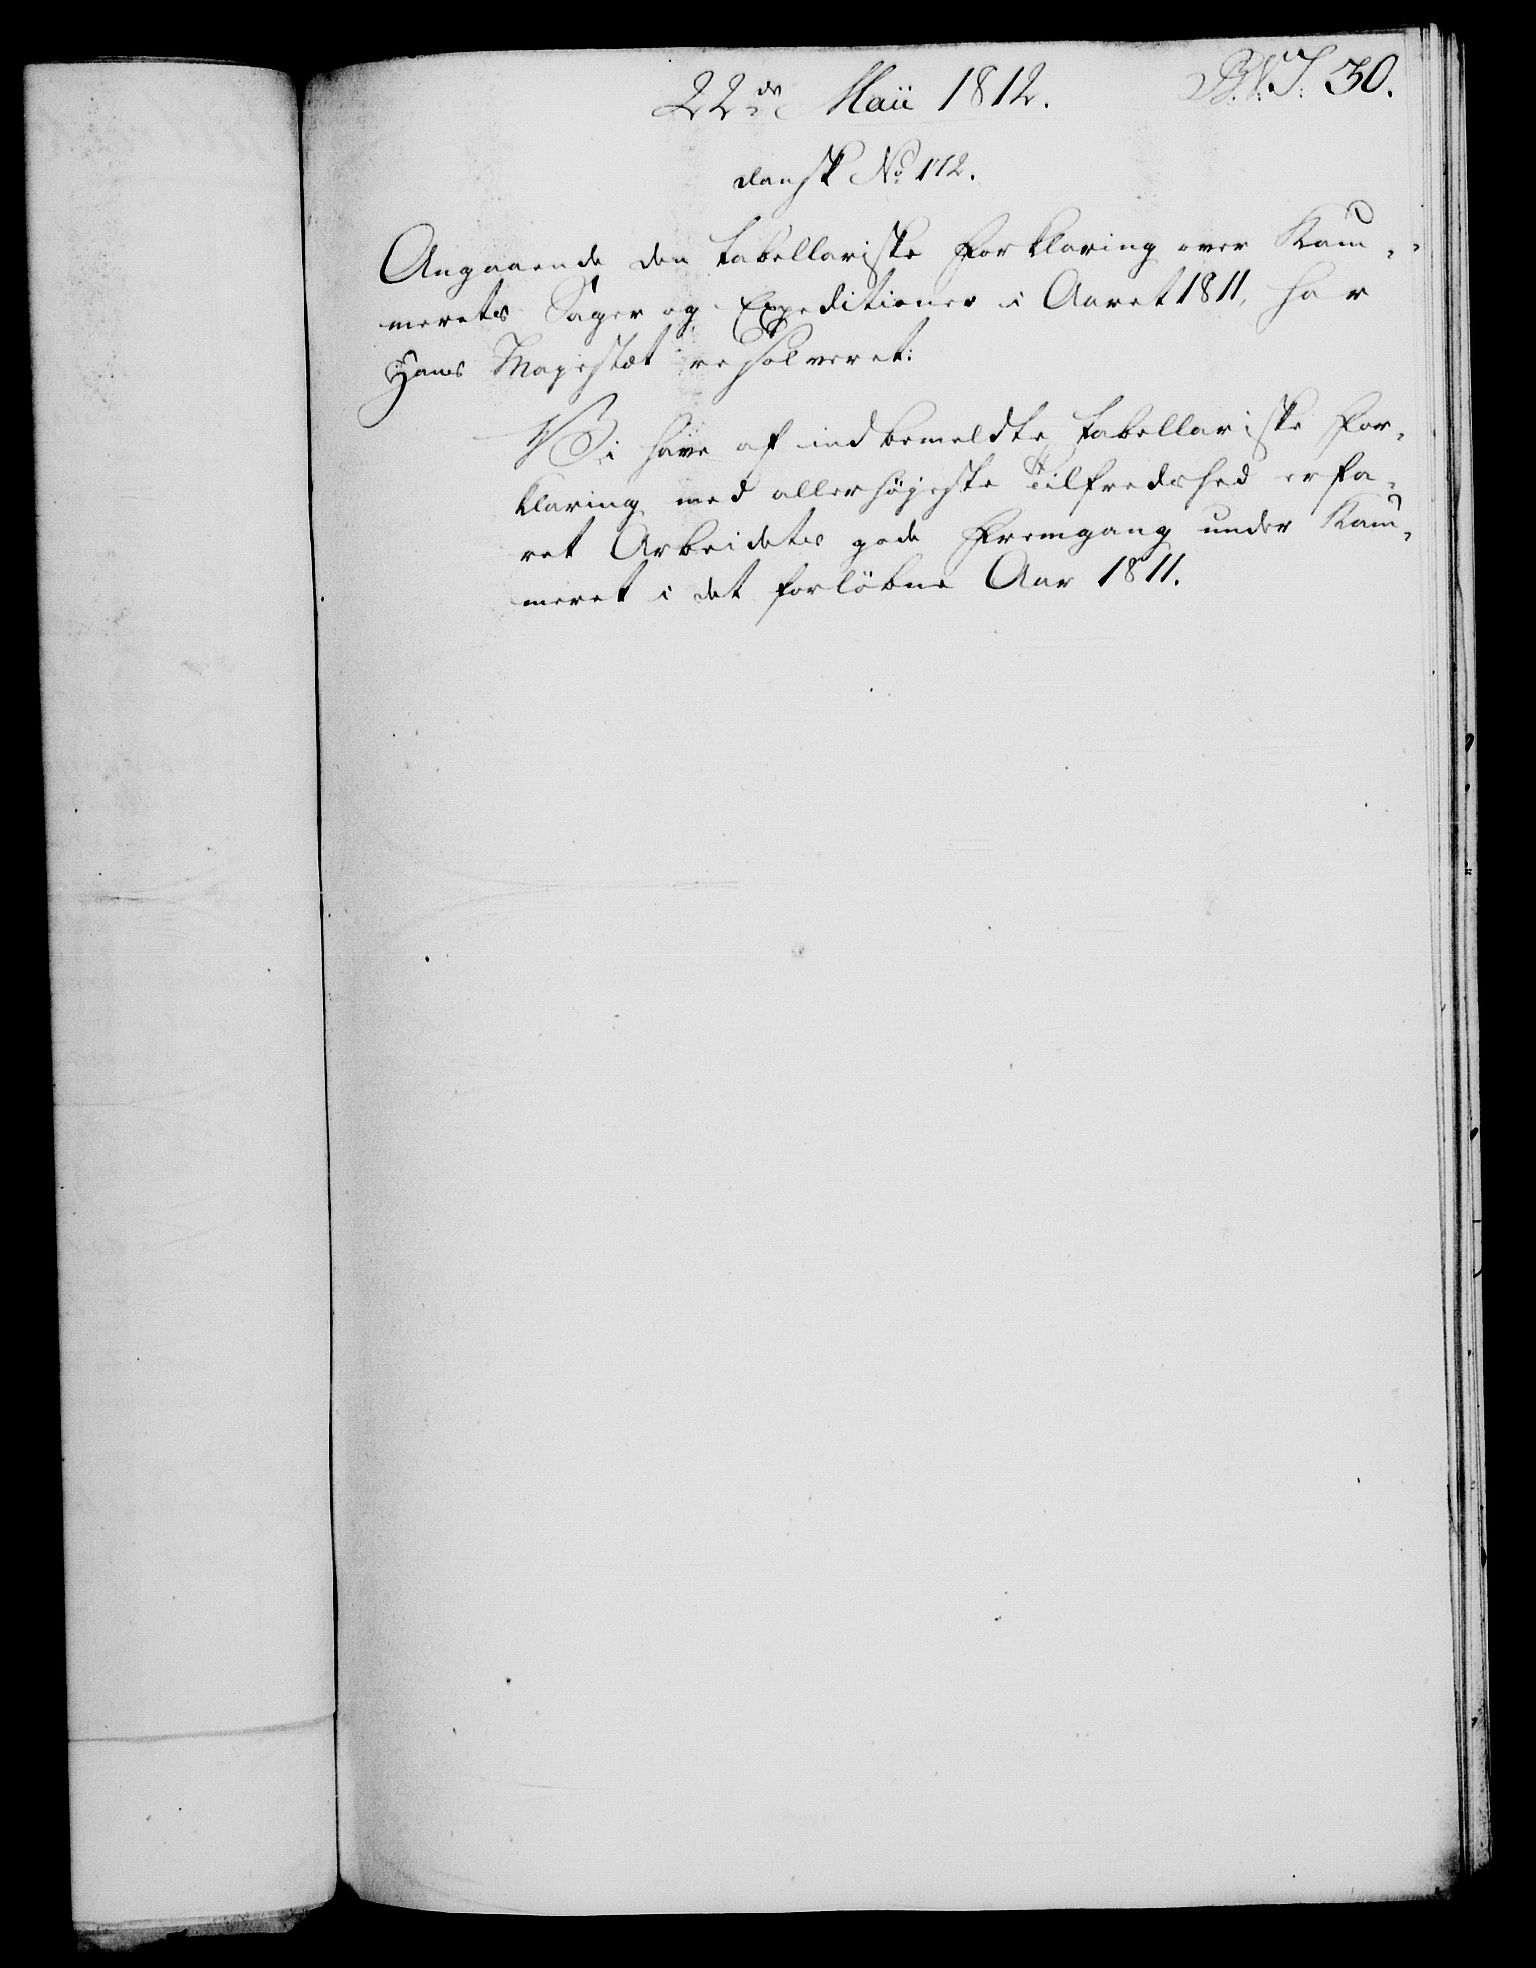 22de Maii 1812.
30.
dansk No 172.
Angaaende den tabellariske Forklaring over Kam-
merets Sager og Expeditioner i Aaret 1811, har
Hans Majestæt resolveret:
Vi have af indbemeldte tabellariske For-
klaring med allerhøjeste Tilfredshed erfa-
ret Arbeidets gode Fremgang under Kam-
meret i det forløbne Aar 1811.